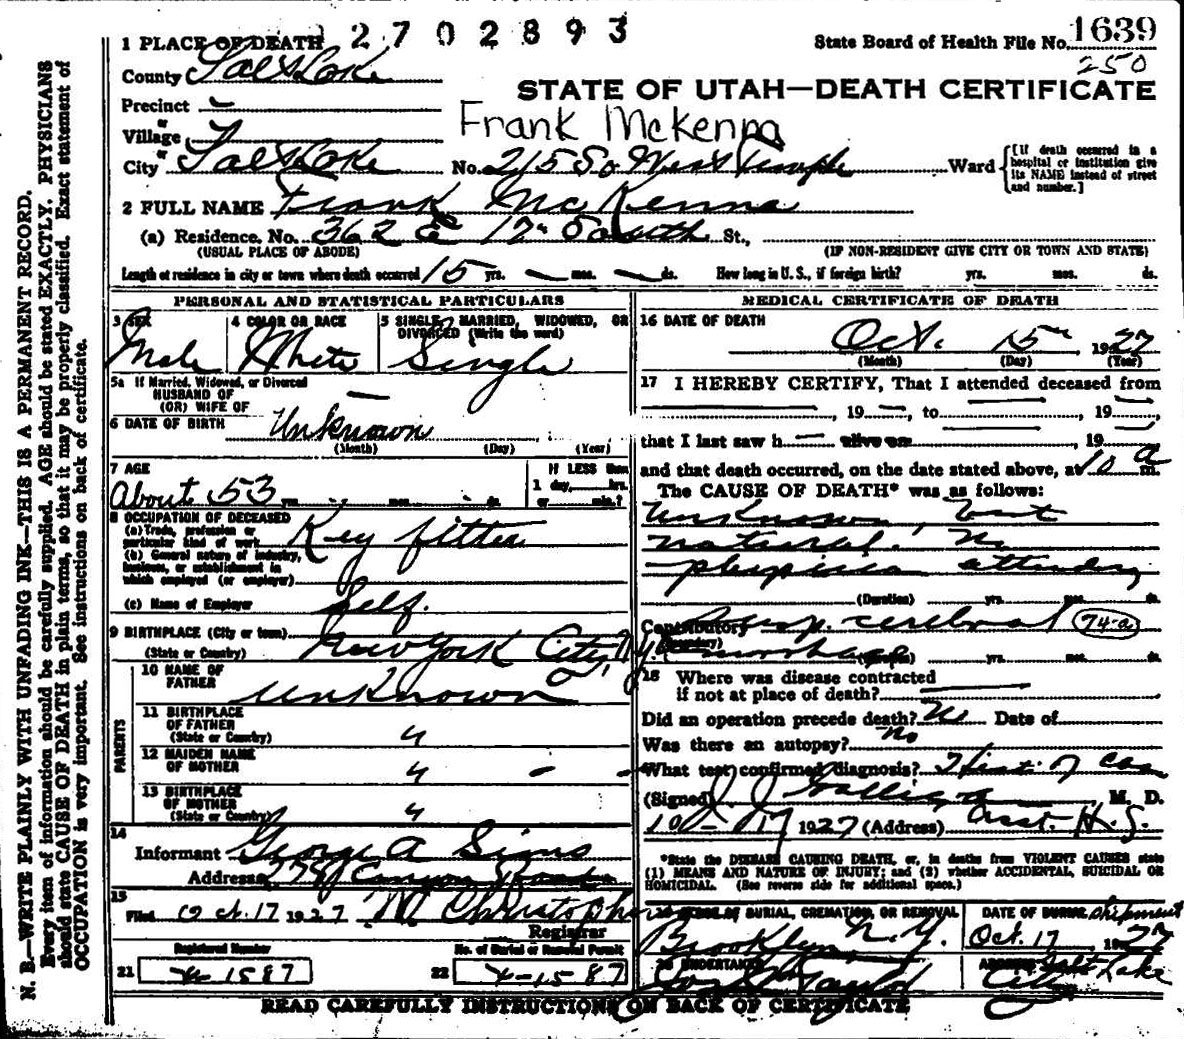 2702893
1639
1 PLACE OF DEATH
State Board of Health File No.
250
County Salt Lake
STATE OF UTAH—DEATH CERTIFICATE
Precinct
Frank McKenna
Village
City Salt Lake No. 215 So West Temple Ward [If death occurred in a hospital or institution give its NAME instead of street and number.]
2 FULL NAME Frank McKenna
(a) Residence. No. 362 E 17th South St.,
(USUAL PLACE OF ABODE) (IF NON-RESIDENT GIVE CITY OR TOWN AND STATE)
Length of residence in city or town where death occurred 15 yrs. — mos. — ds. How long in U. S., if foreign birth? yrs. mos. ds.
PERSONAL AND STATISTICAL PARTICULARS
3 SEX 4 COLOR OR RACE 5 SINGLE, MARRIED, WIDOWED, OR DIVORCED (Write the word)
Male White Single
5a If Married, Widowed, or Divorced
HUSBAND OF
(OR) WIFE OF —
6 DATE OF BIRTH Unknown
(Month) (Day) (Year)
7 AGE IF LESS than
1 day, hrs.
About 53 yrs. mos. ds. or min.?
8 OCCUPATION OF DECEASED
(a) Trade, profession or particular kind of work Key fitter
(b) General nature of industry, business, or establishment in which employed (or employer)
(c) Name of Employer Self.
9 BIRTHPLACE (City or town)
(State or Country) New York City, N.Y.
PARENTS
10 NAME OF FATHER Unknown
11 BIRTHPLACE OF FATHER
(State or Country) "
12 MAIDEN NAME OF MOTHER "
13 BIRTHPLACE OF MOTHER
(State or Country) "
14
Informant George A Sims
Address Canyon Road
15
Filed Oct. 17 1927
Registrar
Registered Number No. of Burial or Removal Permit
21 1587 22 1587
MEDICAL CERTIFICATE OF DEATH
16 DATE OF DEATH
Oct. 15 1927
(Month) (Day) (Year)
17 I HEREBY CERTIFY, That I attended deceased from
—, 19 —, to —, 19 —,
that I last saw h — alive on —, 19 —
and that death occurred, on the date stated above, at 10 a m.
The CAUSE OF DEATH* was as follows:
Unknown, but
natural. No
physician attending
(Duration) yrs. mos. ds.
Contributory cerebral 74-a
(Secondary) (Duration) yrs. mos. ds.
18 Where was disease contracted
if not at place of death? —
Did an operation precede death? No Date of
Was there an autopsy? No
What test confirmed diagnosis? Hist. of case
(Signed) M. D.
10-17 1927 (Address) Asst. H.S.
*State the DISEASE CAUSING DEATH, or, in deaths from VIOLENT CAUSES state
(1) MEANS AND NATURE OF INJURY; and (2) whether ACCIDENTAL, SUICIDAL OR
HOMICIDAL. (See reverse side for additional space.)
19 PLACE OF BURIAL, CREMATION, OR REMOVAL DATE OF BURIAL shipment
Brooklyn N.Y. Oct. 17 1927
20 UNDERTAKER ADDRESS Salt Lake
Taylor City
READ CAREFULLY INSTRUCTIONS ON BACK OF CERTIFICATE
N. B.—WRITE PLAINLY WITH UNFADING INK—THIS IS A PERMANENT RECORD.
Every item of information should be carefully supplied. AGE should be stated EXACTLY. PHYSICIANS
should state CAUSE OF DEATH in plain terms, so that it may be properly classified. Exact statement of
OCCUPATION is very important. See instructions on back of certificate.